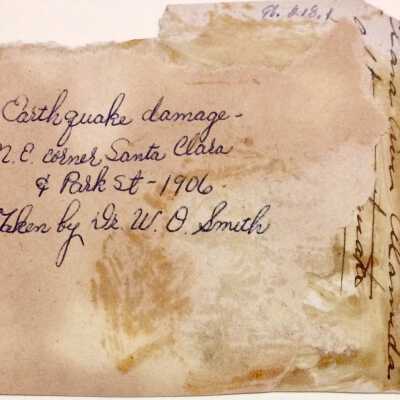 Earthquake damage-
N. E. corner Santa Clara
& Park St - 1906.
Taken by Dr. W. O. Smith
Alameda